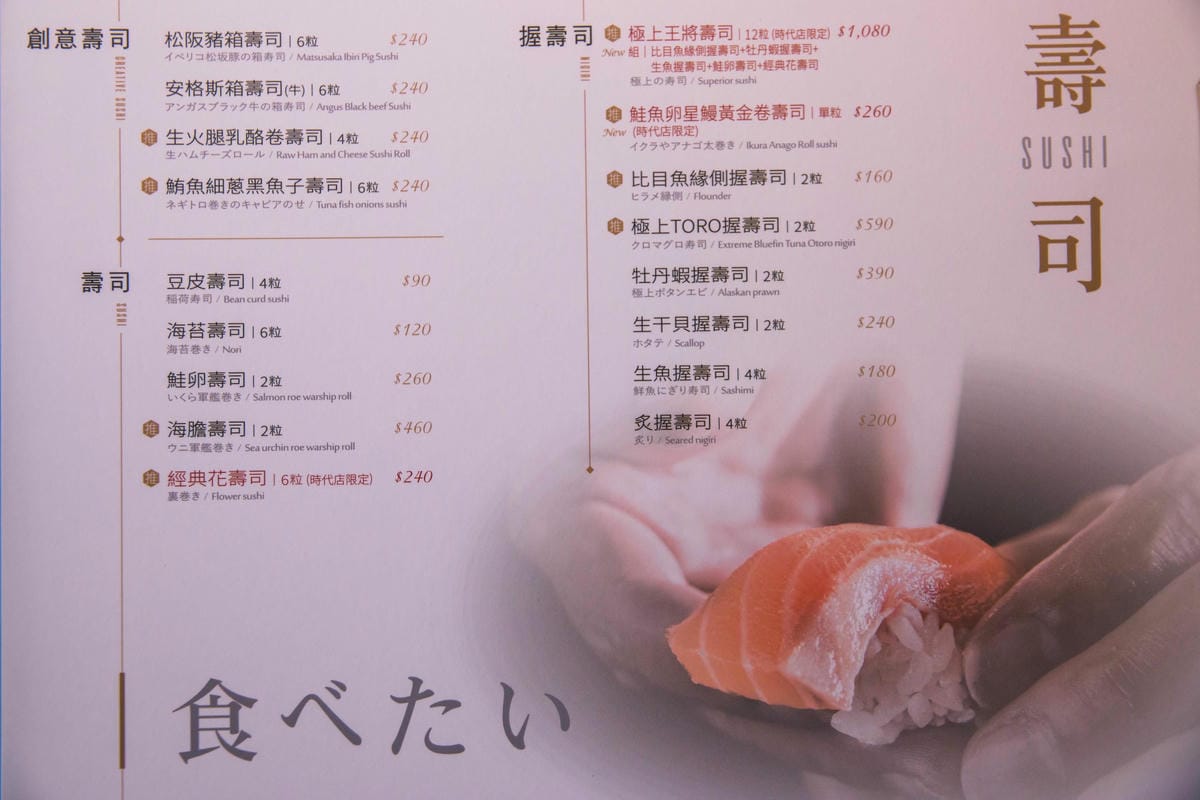 創意壽司
CREATIVE SUSHI
松阪豬箱壽司 | 6粒 $240
イベリコ松坂豚の箱寿司 / Matsusaka Ibiri Pig Sushi
安格斯箱壽司(牛) | 6粒 $240
アンガスブラック牛の箱寿司 / Angus Black beef Sushi
推 生火腿乳酪卷壽司 | 4粒 $240
生ハムチーズロール / Raw Ham and Cheese Sushi Roll
推 鮪魚細蔥黑魚子壽司 | 6粒 $240
ネギトロ巻きのキャビアのせ / Tuna fish onions sushi
壽司
SUSHI
豆皮壽司 | 4粒 $90
稲荷寿司 / Bean curd sushi
海苔壽司 | 6粒 $120
海苔巻き / Nori
鮭卵壽司 | 2粒 $260
いくら軍艦巻き / Salmon roe warship roll
推 海膽壽司 | 2粒 $460
ウニ軍艦巻き / Sea urchin roe warship roll
推 經典花壽司 | 6粒 (時代店限定) $240
裏巻き / Flower sushi
握壽司
NIGIRI
推 極上王將壽司 | 12粒 (時代店限定) $1,080
New 組 | 比目魚緣側握壽司+牡丹蝦握壽司+
生魚握壽司+鮭卵壽司+經典花壽司
極上の寿司 / Superior sushi
推 鮭魚卵星鰻黃金卷壽司 | 單粒 $260
New (時代店限定)
イクラやアナゴ太巻き / Ikura Anago Roll sushi
推 比目魚緣側握壽司 | 2粒 $160
ヒラメ縁側 / Flounder
推 極上TORO握壽司 | 2粒 $590
クロマグロ寿司 / Extreme Bluefin Tuna Otoro nigiri
牡丹蝦握壽司 | 2粒 $390
極上ボタンエビ / Alaskan prawn
生干貝握壽司 | 2粒 $240
ホタテ / Scallop
生魚握壽司 | 4粒 $180
鮮魚にぎり寿司 / Sashimi
炙握壽司 | 4粒 $200
炙り / Seared nigiri
壽司
SUSHI
食べたい